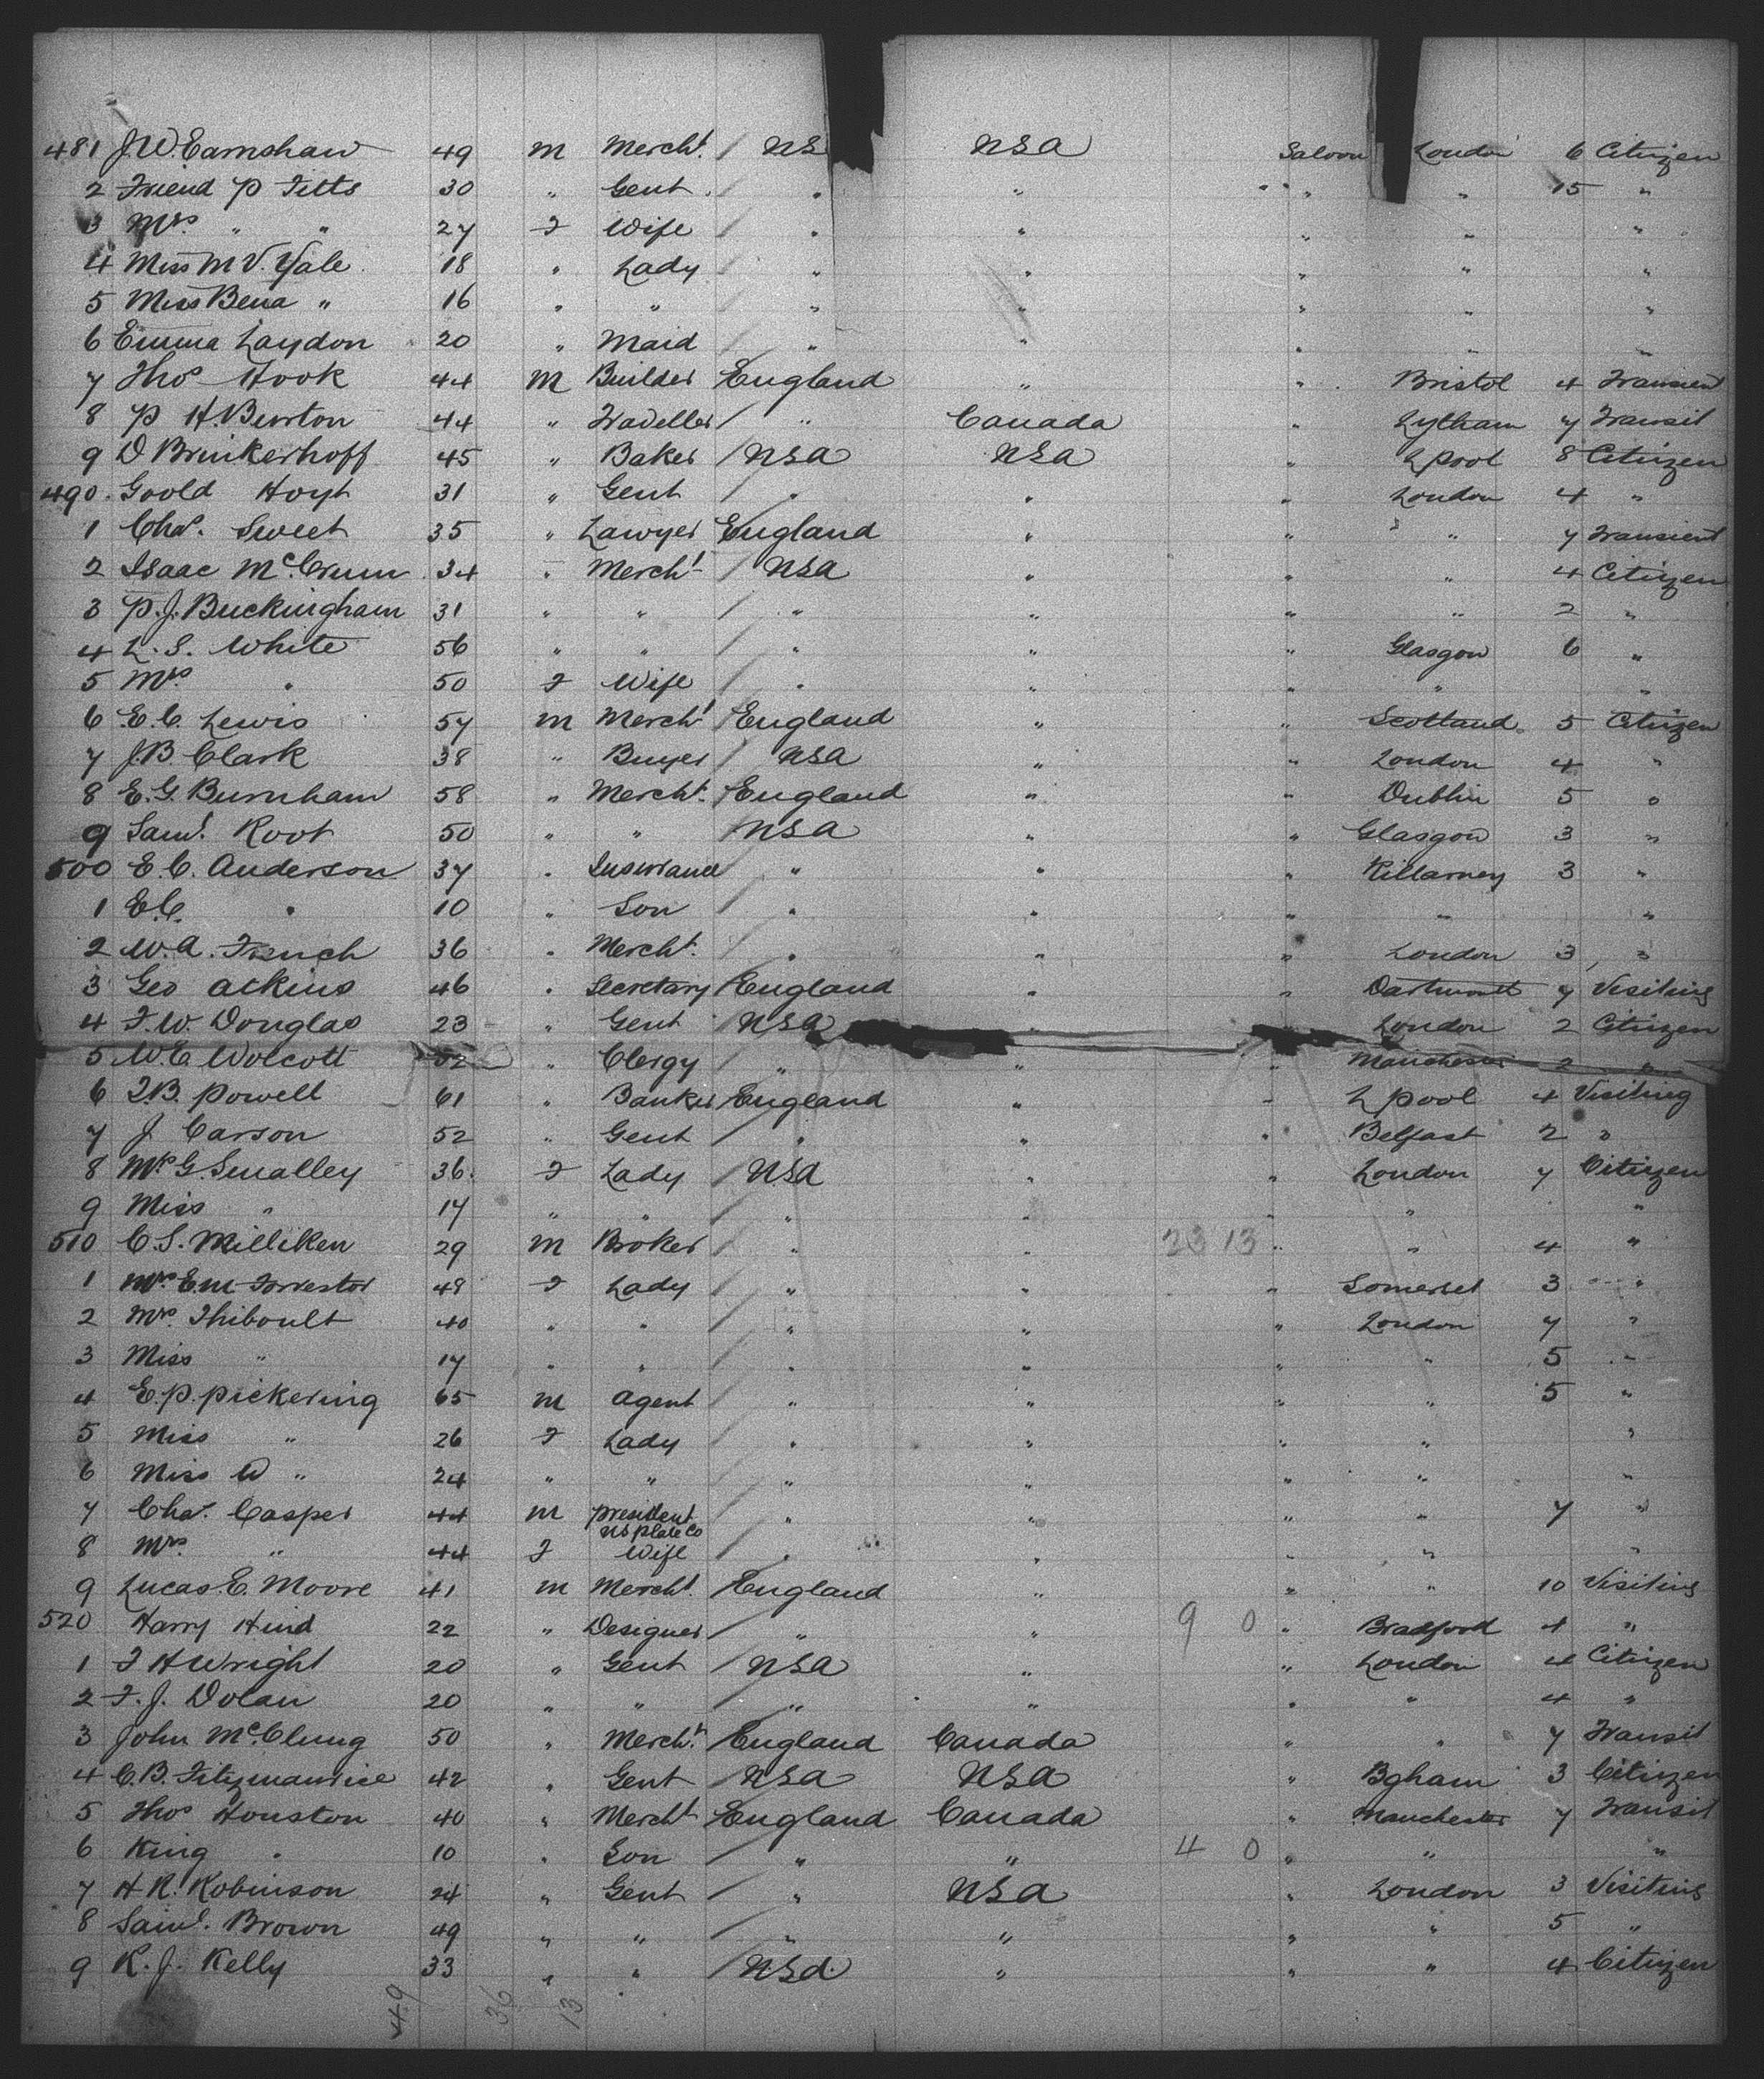 481 J.W. Earnshaw 49 m Mercht. / US USA Saloon London 6 Citizen
2 Friend P Fitts 30 " Gent " " " " 15 "
3 Mrs " " 27 F Wife / " " " " "
4 Miss M V. Yale 18 " Lady / " " " " "
5 Miss Bena " 16 " " / " " " " "
6 Emma Laydon 20 " Maid / " " " " "
7 Thos Hook 44 m Builder / England " " Bristol 4 Transient
8 P H. Burton 44 " Traveller / " Canada " Lytham 7 Transit
9 D Brinkerhoff 45 " Baker / USA USA " Lpool 8 Citizen
490. Goold Hoyt 31 " Gent / " " " London 4 "
1 Chas. Sweet 35 " Lawyer England " " " 7 Transient
2 Isaac McCrum 34 " Mercht / USA " " " 4 Citizen
3 P.J. Buckingham 31 " " / " " " " 2 "
4 L.S. White 56 " " / " " " Glasgow 6 "
5 Mrs " 50 F Wife / " " " " "
6 E.C. Lewis 57 m Mercht / England " " Scotland 5 Citizen
7 J.B. Clark 38 " Buyer / USA " " London 4 "
8 E.G. Burnham 58 " Mercht. / England " " Dublin 5 "
9 Saml. Root 50 " " / USA " " Glasgow 3 "
500 E.C. Anderson 37 " Insurance / " " " Killarney 3 "
1 E.C. " 10 " Son / " " " " "
2 W.A. French 36 " Mercht. / " " " London 3 "
3 Geo Atkins 46 " Secretary / England " " Dartmouth 7 Visiting
4 F.W. Douglas 23 " Gent / USA " London 2 Citizen
5 W.E. Wolcott " Clergy / " " " Manchester 2 "
6 I.B. Powell 61 " Banker / England " " L pool 4 Visiting
7 J Carson 52 " Gent / " " " Belfast 2 "
8 Mrs G. Smalley 36. F Lady / USA " " London 7 Citizen
9 Miss " 17 " " / " " " " "
510 C.S. Milliken 29 m Broker " " 23 13 " " 4 "
1 Mrs E.M Forrestor 48 F Lady / " " " Somerset 3 "
2 Mrs. Thiboult 40 " " / " " " London 7 "
3 Miss " 17 " " / " " " " 5 "
4 E.P. Pickering 65 m Agent / " " " " 5 "
5 Miss " 26 F Lady / " " " " "
6 Miss W " 24 " " / " " " " "
7 Chas. Casper 44 m President / " " " " 7 "
US Plate Co
8 Mrs. " 44 F Wife / " " " " "
9 Lucas E. Moore 41 m Mercht. / England " " " 10 Visiting
520 Harry Hind 22 " Designer / " " 9 0 " Bradford 4 "
1 F H Wright 20 " Gent / USA " " London 4 Citizen
2 F.J. Dolan 20 " " / " " " " 4 "
3 John McClung 50 " Mercht. / England Canada " " 7 Transit
4 C.B. Fitzmaurice 42 " Gent / USA USA " Bgham 3 Citizen
5 Thos Houston 40 " Mercht / England Canada " Manchester 7 Transit
6 King " 10 " Son / " " 4 0 " " "
7 H R. Robinson 24 " Gent / " USA " London 3 Visiting
8 Saml. Brown 49 " " / " " " " 5 "
9 R.J. Kelly 33 " " / USA " " " 4 Citizen
49 36 13